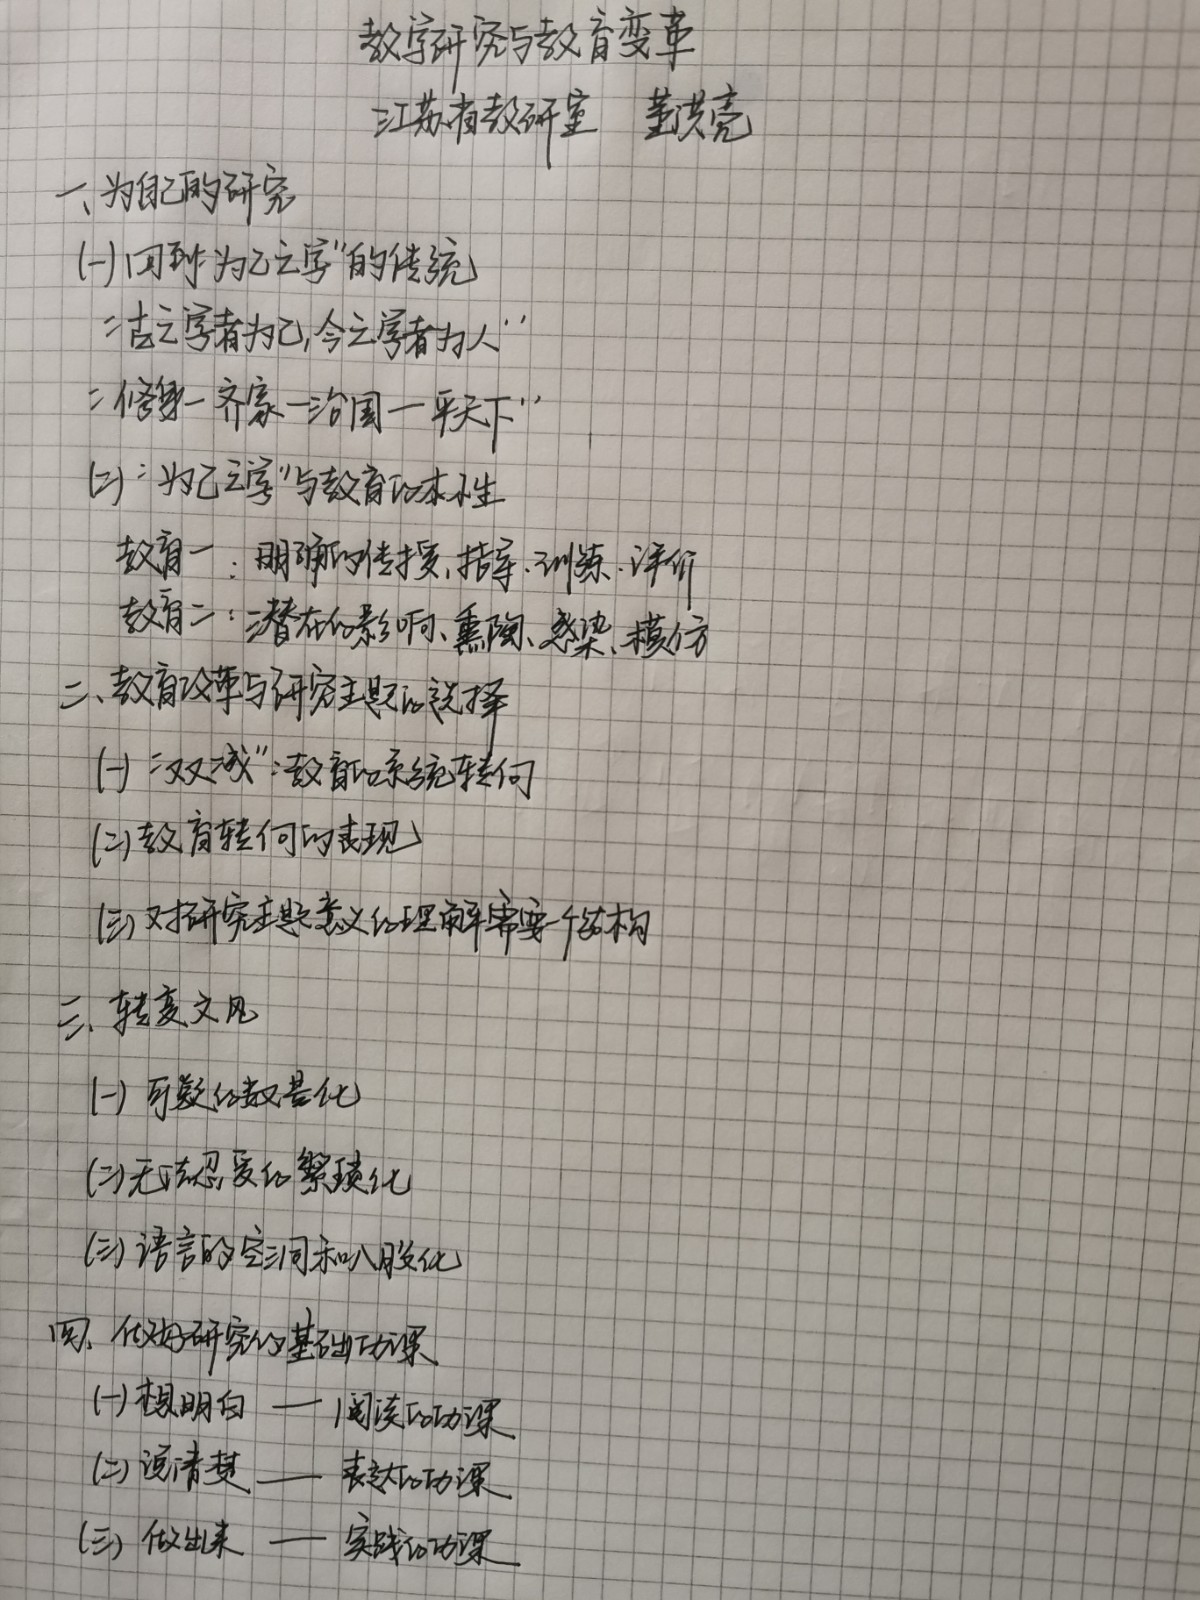 教学研究与教育变革
江苏省教研室 董洪亮
一、为自己的研究
(一)回到"为己之学"的传统
"古之学者为己,今之学者为人"
"修身—齐家—治国—平天下"
(二)"为己之学"与教育的本性
教育一:明确的传授、指导、训练、评价
教育二:潜在的影响、熏陶、感染、模仿
二、教育改革与研究主题的选择
(一)"双减":教育的系统转向
(二)教育转向的表现
(三)对研究主题意义的理解需要一个结构
三、转变文风
(一)可疑的数量化
(二)无法忍受的繁琐化
(三)语言的空洞和八股化
四、做好研究的基础功课
(一)想明白——阅读的功课
(二)说清楚——表达的功课
(三)做出来——实践的功课